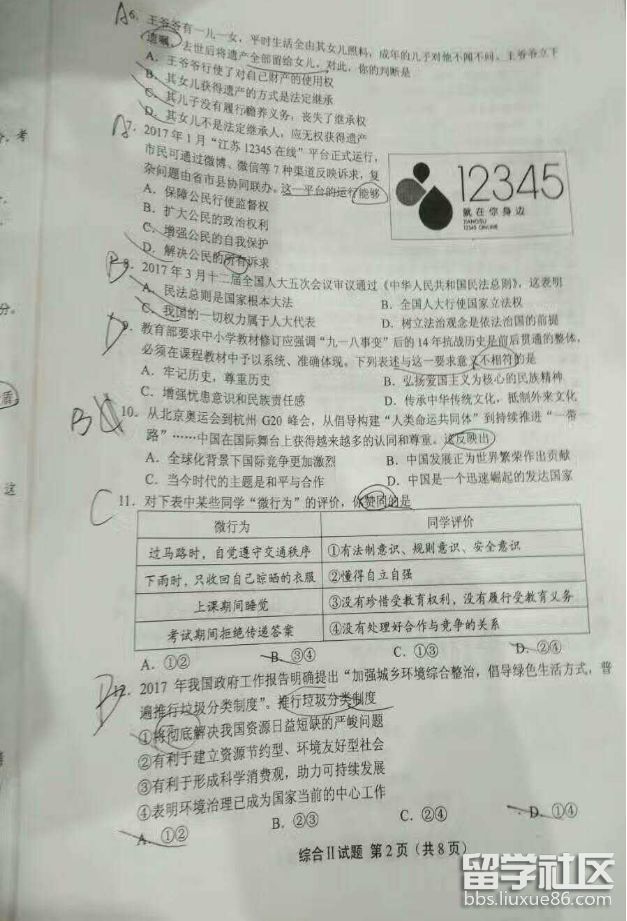 A 6. 王爷爷有一儿一女，平时生活全由其女儿照料，成年的儿子对他不闻不问。王爷爷立下
遗嘱，去世后将遗产全部留给女儿，对此，你的判断是
A．王爷爷行使了对自己财产的使用权
B．其女儿获得遗产的方式是法定继承
C．其儿子没有履行赡养义务，丧失了继承权
D．其女儿不是法定继承人，应无权获得遗产
A 7. 2017年1月“江苏12345在线”平台正式运行，
市民可通过微博、微信等7种渠道反映诉求，复
杂问题由省市县协同联办。这一平台的运行能够
A．保障公民行使监督权
B．扩大公民的政治权利
C．增强公民的自我保护
D．解决公民的所有诉求
12345
就在你身边
JIANGSU
12345 ONLINE
B 8. 2017年3月十二届全国人大五次会议审议通过《中华人民共和国民法总则》，这表明
A．民法总则是国家根本大法 B．全国人大行使国家立法权
C．我国的一切权力属于人大代表 D．树立法治观念是依法治国的前提
D 9. 教育部要求中小学教材修订应强调“九一八事变”后的14年抗战历史是前后贯通的整体，
必须在课程教材中予以系统、准确体现。下列表述与这一要求意义不相符的是
A．牢记历史，尊重历史 B．弘扬爱国主义为核心的民族精神
C．增强忧患意识和民族责任感 D．传承中华传统文化，抵制外来文化
B 10. 从北京奥运会到杭州G20峰会，从倡导构建“人类命运共同体”到持续推进“一带一
路”……中国在国际舞台上获得越来越多的认同和尊重。这反映出
A．全球化背景下国际竞争更加激烈 B．中国发展正为世界繁荣作出贡献
C．当今时代的主题是和平与合作 D．中国是一个迅速崛起的发达国家
C 11. 对下表中某些同学“微行为”的评价，你赞同的是
微行为 同学评价
过马路时，自觉遵守交通秩序 ①有法制意识、规则意识、安全意识
下雨时，只收回自己晾晒的衣服 ②懂得自立自强
上课期间睡觉 ③没有珍惜受教育权利，没有履行受教育义务
考试期间拒绝传递答案 ④没有处理好合作与竞争的关系
A．①② B．③④ C．①③ D．②④
B 12. 2017年我国政府工作报告明确提出“加强城乡环境综合整治，倡导绿色生活方式，普
遍推行垃圾分类制度”。推行垃圾分类制度
①将彻底解决我国资源日益短缺的严峻问题
②有利于建立资源节约型、环境友好型社会
③有利于形成科学消费观，助力可持续发展
④表明环境治理已成为国家当前的中心工作
A．①② B．②③ C．②④ D．①④
综合Ⅱ试题 第2页（共8页）
留学社区
bbs.liuxue86.com
考
分。
盾
这